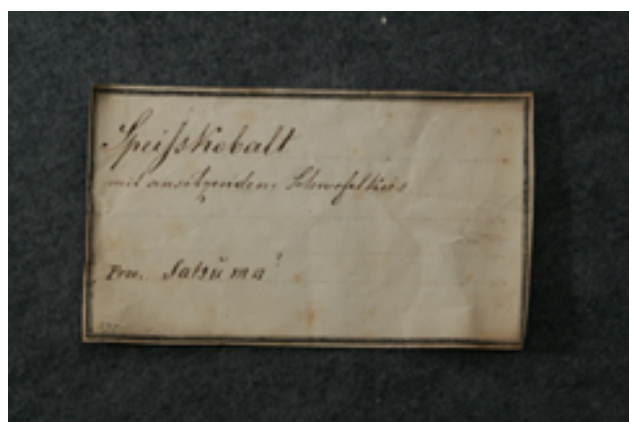 Speiſskobalt
mit ansitzendem Schwefelkies
Prov. Satzŭma?